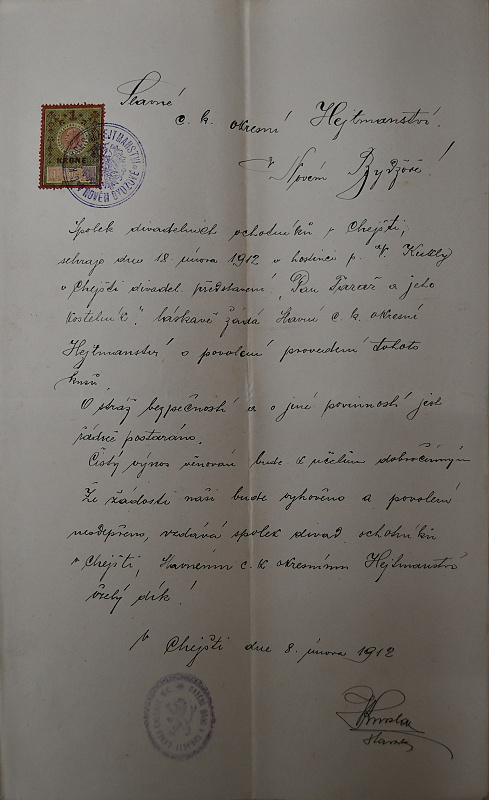 Slavné
c. k. okresní Hejtmanství
v Novém Bydžově!
1
KRONE
HEJTMANSTVÍ
V NOVÉM BYDŽOVĚ
Spolek divadelních ochotníků v Chejšti,
sehraje dne 18. února 1912 v hostinci p. V. 
v Chejšti divadel. představení "Pan Farář a jeho
kostelník", láskavě žádá Slavné c. k. okresní
Hejtmanství o povolení provedení tohoto
kusu.
O stráž bezpečnosti a o jiné povinnosti jest
řádně postaráno.
Čistý výnos věnován bude k účelům dobročinným
Že žádosti naší bude vyhověno a povolení
neodepřeno, vzdává spolek divad. ochotníků
v Chejšti, Slavnému c. k. okresnímu Hejtmanství
vřelý dík!
V Chejšti dne 8. února 1912